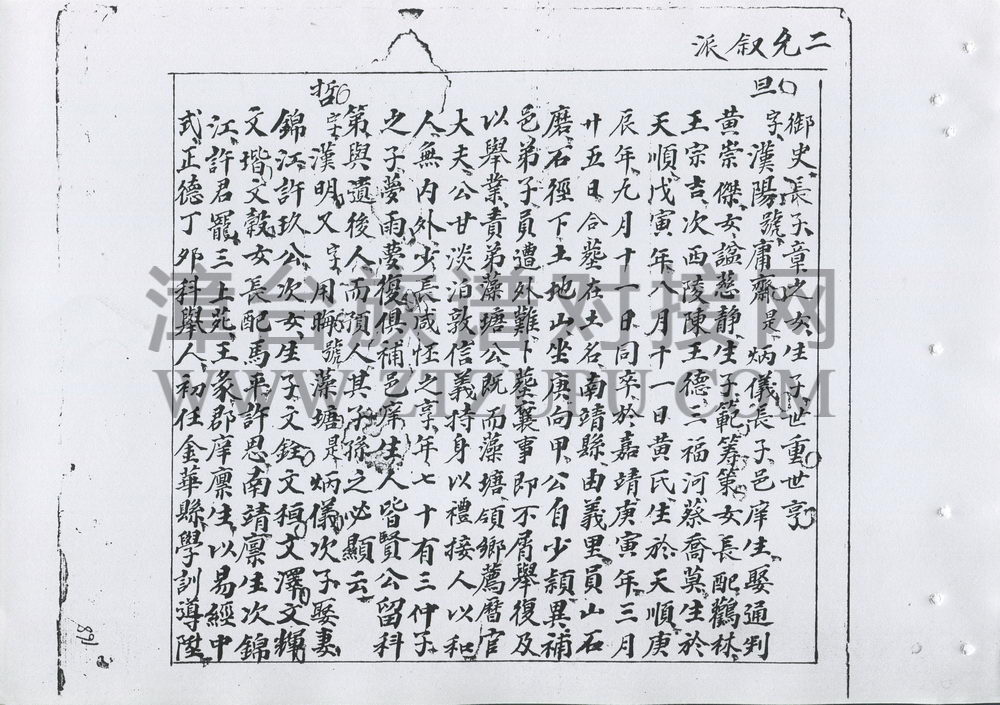 二允叙派
御史長子章之女生子世重世亨
旦
字漢陽號庸齋是炳儀長子邑庠生娶通判
黄崇傑女謚慈静生子範籌策女長配鸛林
王宗吉次西陵陳王德三福河蔡喬莫生於
天順戊寅年八月十一日黄氏生於天順庚
辰年九月十一日同卒於嘉靖庚寅年三月
廿五日合墓在土名南靖縣由義里員山石
磨石徑下土地山坐庚向甲公自少頴異補
邑弟子員遭外難卜墓襄事即不屑舉復及
以舉業責弟藻塘公既而藻塘領鄉薦曆官
大夫公甘淡泊敦信義持身以禮接人以和
人無内外少長咸怌之享年七十有三仲子
之子夢雨夢復俱補邑庠生人皆賢公留科
第與遺後人而預人其子孫之必顯云
哲
字漢明又字用晦號藻塘是炳儀次子娶妻
錦江許玖公次女生子文銓文桓文澤文輝
文堦文穀女長配馬平許恩南靖廪生次錦
江許君寵三上苑王象郡庠廪生以易經中
式正德丁卯科舉人初任金華縣學訓導陞
168
漳台族谱对接网
WWW.ZTZUPU.COM